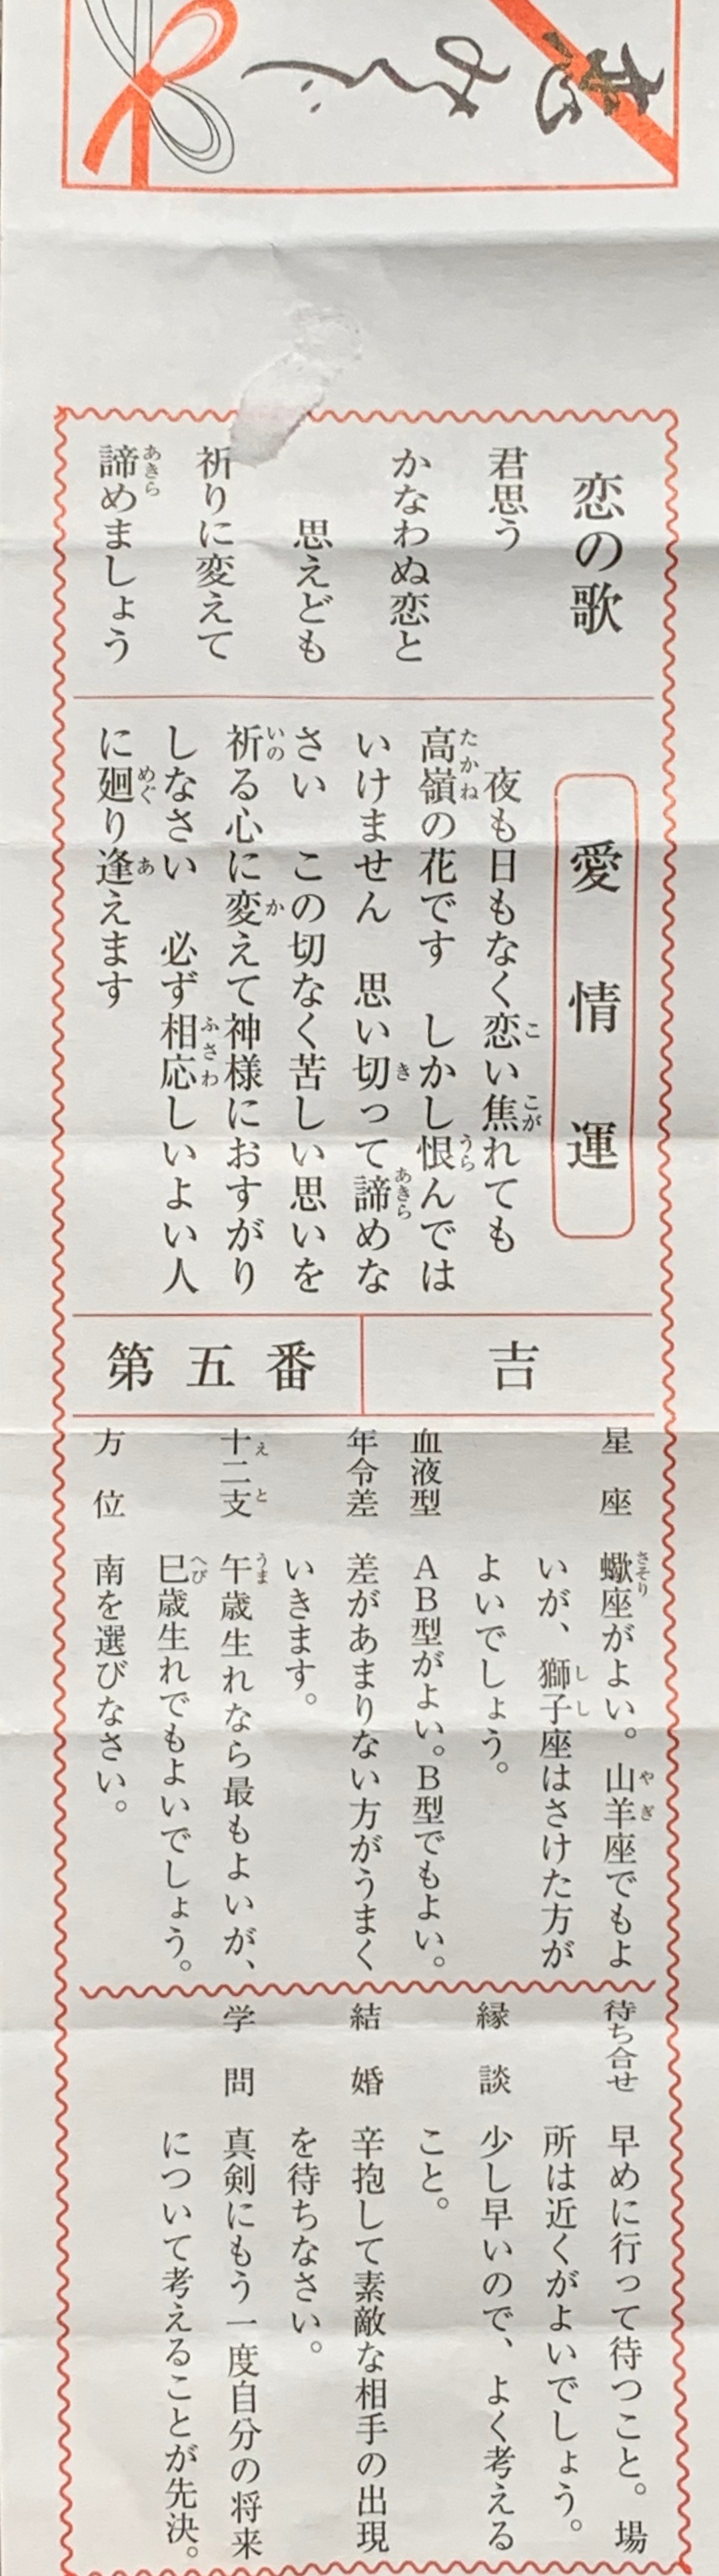 恋みくじ
恋の歌
君思う
かなわぬ恋と
思えども
祈りに変えて
諦めましょう
あきら
愛情運
夜も日もなく恋い焦れても
こ
こが
高嶺の花です しかし恨んでは
たかね
うら
いけません 思い切って諦めな
き
あきら
さい この切なく苦しい思いを
祈る心に変えて神様におすがり
いの
か
しなさい 必ず相応しいよい人
ふさわ
に廻り逢えます
めぐ
あ
吉
第五番
星座
蠍座がよい。山羊座でもよ
さそり
やぎ
いが、獅子座はさけた方が
しし
よいでしょう。
血液型
AB型がよい。B型でもよい。
年令差
差があまりない方がうまく
いきます。
十二支
えと
午歳生れなら最もよいが、
うま
巳歳生れでもよいでしょう。
へび
方位
南を選びなさい。
待ち合せ
早めに行って待つこと。場
所は近くがよいでしょう。
縁談
少し早いので、よく考える
こと。
結婚
辛抱して素敵な相手の出現
を待ちなさい。
学問
真剣にもう一度自分の将来
について考えることが先決。